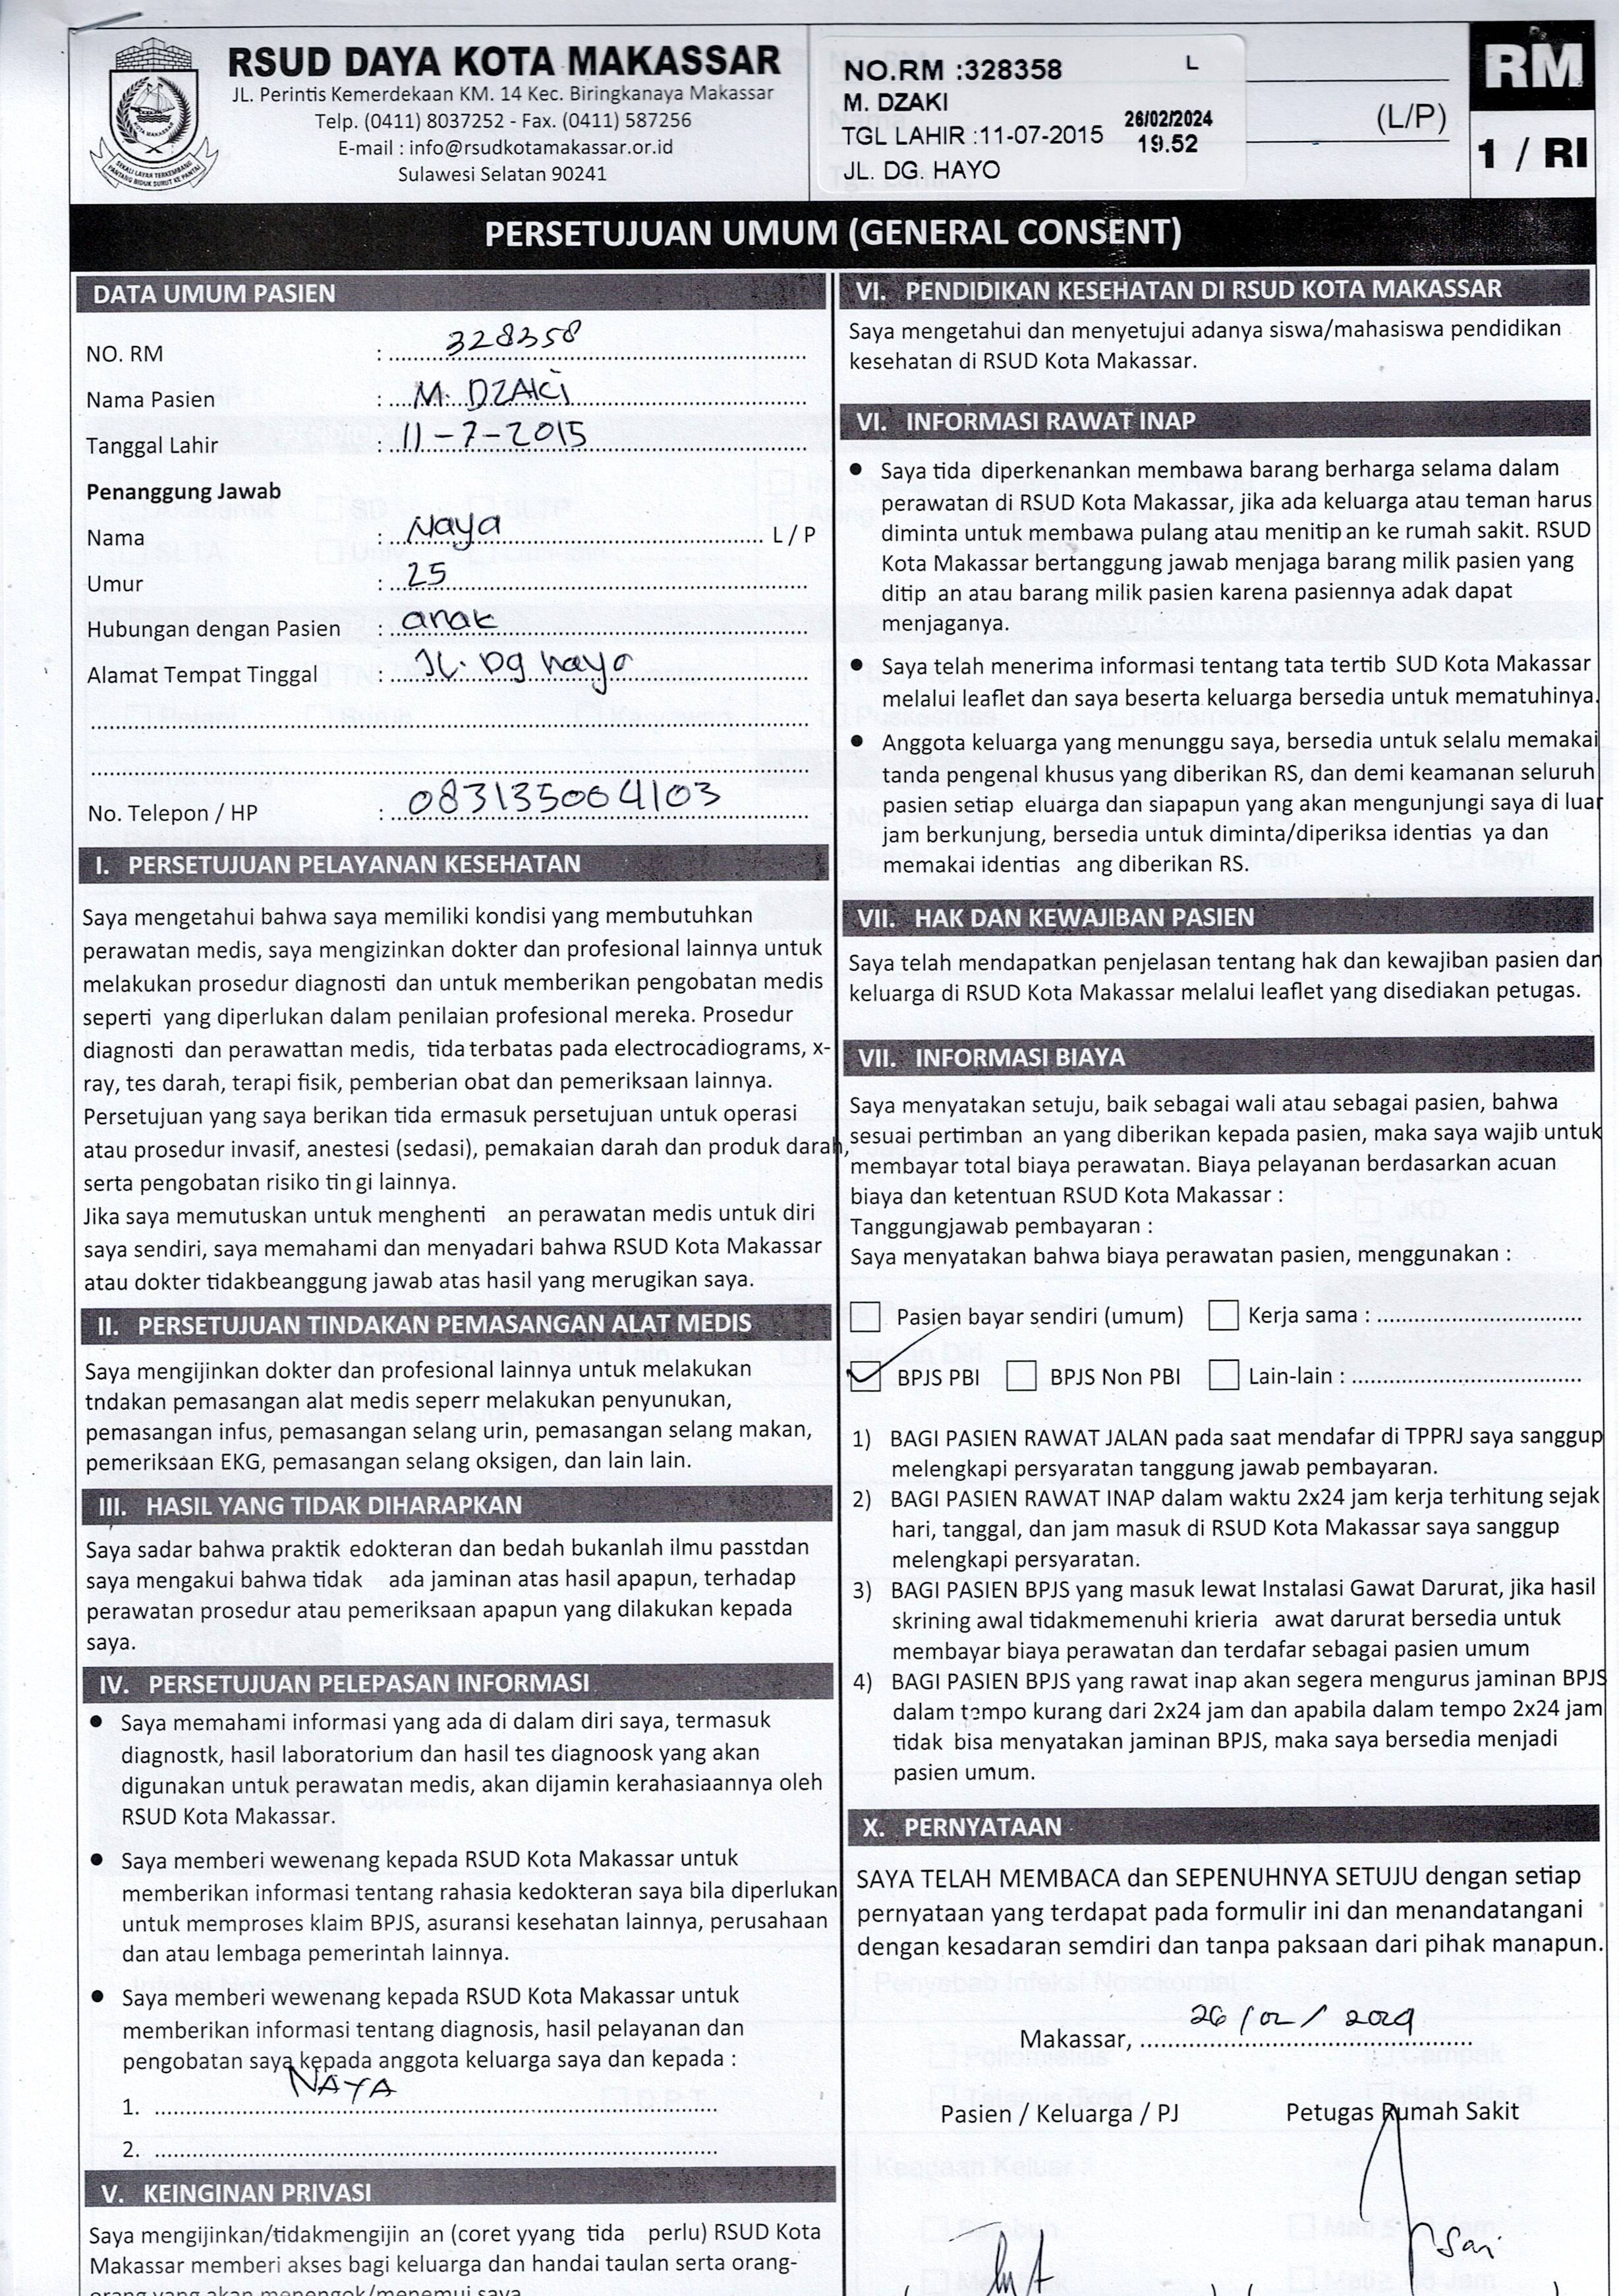 RSUD DAYA KOTA MAKASSAR
JL. Perintis Kemerdekaan KM. 14 Kec. Biringkanaya Makassar
Telp. (0411) 8037252 - Fax. (0411) 587256
E-mail : info@rsudkotamakassar.or.id
Sulawesi Selatan 90241
NO.RM :328358 L
M. DZAKI
TGL LAHIR :11-07-2015
JL. DG. HAYO
26/02/2024
19.52
(L/P)
RM
1 / RI
PERSETUJUAN UMUM (GENERAL CONSENT)
DATA UMUM PASIEN
NO. RM : 328358
Nama Pasien : M. DZAKI
Tanggal Lahir : 11-7-2015
Penanggung Jawab
Nama : Naya L / P
Umur : 25
Hubungan dengan Pasien : anak
Alamat Tempat Tinggal : JL. Dg hayo
No. Telepon / HP : 083135064103
I. PERSETUJUAN PELAYANAN KESEHATAN
Saya mengetahui bahwa saya memiliki kondisi yang membutuhkan
perawatan medis, saya mengizinkan dokter dan profesional lainnya untuk
melakukan prosedur diagnosti dan untuk memberikan pengobatan medis
seperti yang diperlukan dalam penilaian profesional mereka. Prosedur
diagnosti dan perawattan medis, tida terbatas pada electrocadiograms, x-
ray, tes darah, terapi fisik, pemberian obat dan pemeriksaan lainnya.
Persetujuan yang saya berikan tida ermasuk persetujuan untuk operasi
atau prosedur invasif, anestesi (sedasi), pemakaian darah dan produk darah,
serta pengobatan risiko tin gi lainnya.
Jika saya memutuskan untuk menghenti an perawatan medis untuk diri
saya sendiri, saya memahami dan menyadari bahwa RSUD Kota Makassar
atau dokter tidakbeanggung jawab atas hasil yang merugikan saya.
II. PERSETUJUAN TINDAKAN PEMASANGAN ALAT MEDIS
Saya mengijinkan dokter dan profesional lainnya untuk melakukan
tndakan pemasangan alat medis seperr melakukan penyunukan,
pemasangan infus, pemasangan selang urin, pemasangan selang makan,
pemeriksaan EKG, pemasangan selang oksigen, dan lain lain.
III. HASIL YANG TIDAK DIHARAPKAN
Saya sadar bahwa praktik edokteran dan bedah bukanlah ilmu passtdan
saya mengakui bahwa tidak ada jaminan atas hasil apapun, terhadap
perawatan prosedur atau pemeriksaan apapun yang dilakukan kepada
saya.
IV. PERSETUJUAN PELEPASAN INFORMASI
• Saya memahami informasi yang ada di dalam diri saya, termasuk
diagnostk, hasil laboratorium dan hasil tes diagnoosk yang akan
digunakan untuk perawatan medis, akan dijamin kerahasiaannya oleh
RSUD Kota Makassar.
• Saya memberi wewenang kepada RSUD Kota Makassar untuk
memberikan informasi tentang rahasia kedokteran saya bila diperlukan
untuk memproses klaim BPJS, asuransi kesehatan lainnya, perusahaan
dan atau lembaga pemerintah lainnya.
• Saya memberi wewenang kepada RSUD Kota Makassar untuk
memberikan informasi tentang diagnosis, hasil pelayanan dan
pengobatan saya kepada anggota keluarga saya dan kepada :
1. NAYA
2.
V. KEINGINAN PRIVASI
Saya mengijinkan/tidakmengijin an (coret yyang tida perlu) RSUD Kota
Makassar memberi akses bagi keluarga dan handai taulan serta orang-
orang yang akan menengok/menemui saya
VI. PENDIDIKAN KESEHATAN DI RSUD KOTA MAKASSAR
Saya mengetahui dan menyetujui adanya siswa/mahasiswa pendidikan
kesehatan di RSUD Kota Makassar.
VI. INFORMASI RAWAT INAP
• Saya tida diperkenankan membawa barang berharga selama dalam
perawatan di RSUD Kota Makassar, jika ada keluarga atau teman harus
diminta untuk membawa pulang atau menitip an ke rumah sakit. RSUD
Kota Makassar bertanggung jawab menjaga barang milik pasien yang
ditip an atau barang milik pasien karena pasiennya adak dapat
menjaganya.
• Saya telah menerima informasi tentang tata tertib SUD Kota Makassar
melalui leaflet dan saya beserta keluarga bersedia untuk mematuhinya.
• Anggota keluarga yang menunggu saya, bersedia untuk selalu memakai
tanda pengenal khusus yang diberikan RS, dan demi keamanan seluruh
pasien setiap eluarga dan siapapun yang akan mengunjungi saya di luar
jam berkunjung, bersedia untuk diminta/diperiksa identias ya dan
memakai identias ang diberikan RS.
VII. HAK DAN KEWAJIBAN PASIEN
Saya telah mendapatkan penjelasan tentang hak dan kewajiban pasien dan
keluarga di RSUD Kota Makassar melalui leaflet yang disediakan petugas.
VII. INFORMASI BIAYA
Saya menyatakan setuju, baik sebagai wali atau sebagai pasien, bahwa
sesuai pertimban an yang diberikan kepada pasien, maka saya wajib untuk
membayar total biaya perawatan. Biaya pelayanan berdasarkan acuan
biaya dan ketentuan RSUD Kota Makassar :
Tanggungjawab pembayaran :
Saya menyatakan bahwa biaya perawatan pasien, menggunakan :
Pasien bayar sendiri (umum) Kerja sama :
BPJS PBI BPJS Non PBI Lain-lain :
1) BAGI PASIEN RAWAT JALAN pada saat mendafar di TPPRJ saya sanggup
melengkapi persyaratan tanggung jawab pembayaran.
2) BAGI PASIEN RAWAT INAP dalam waktu 2x24 jam kerja terhitung sejak
hari, tanggal, dan jam masuk di RSUD Kota Makassar saya sanggup
melengkapi persyaratan.
3) BAGI PASIEN BPJS yang masuk lewat Instalasi Gawat Darurat, jika hasil
skrining awal tidakmemenuhi krieria awat darurat bersedia untuk
membayar biaya perawatan dan terdafar sebagai pasien umum
4) BAGI PASIEN BPJS yang rawat inap akan segera mengurus jaminan BPJS
dalam tempo kurang dari 2x24 jam dan apabila dalam tempo 2x24 jam
tidak bisa menyatakan jaminan BPJS, maka saya bersedia menjadi
pasien umum.
X. PERNYATAAN
SAYA TELAH MEMBACA dan SEPENUHNYA SETUJU dengan setiap
pernyataan yang terdapat pada formulir ini dan menandatangani
dengan kesadaran semdiri dan tanpa paksaan dari pihak manapun.
Makassar, 26/02/2024
Pasien / Keluarga / PJ Petugas Rumah Sakit